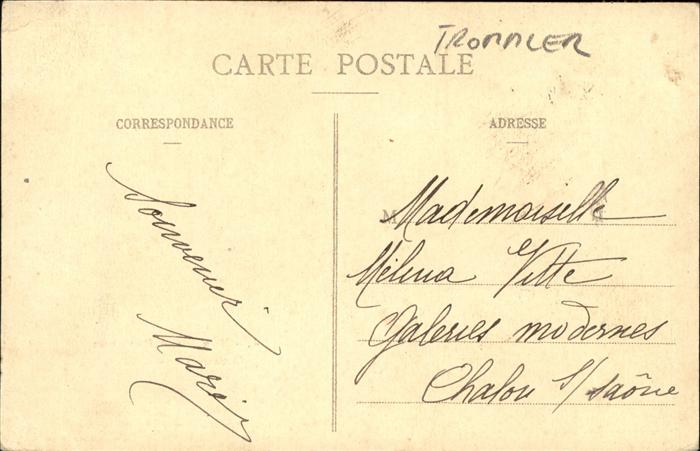 TROMMLER
CARTE POSTALE
CORRESPONDANCE
ADRESSE
Souvenir
Marie
M
Mademoiselle
Mélina Vitte
Galeries modernes
Chalon s/ Saône